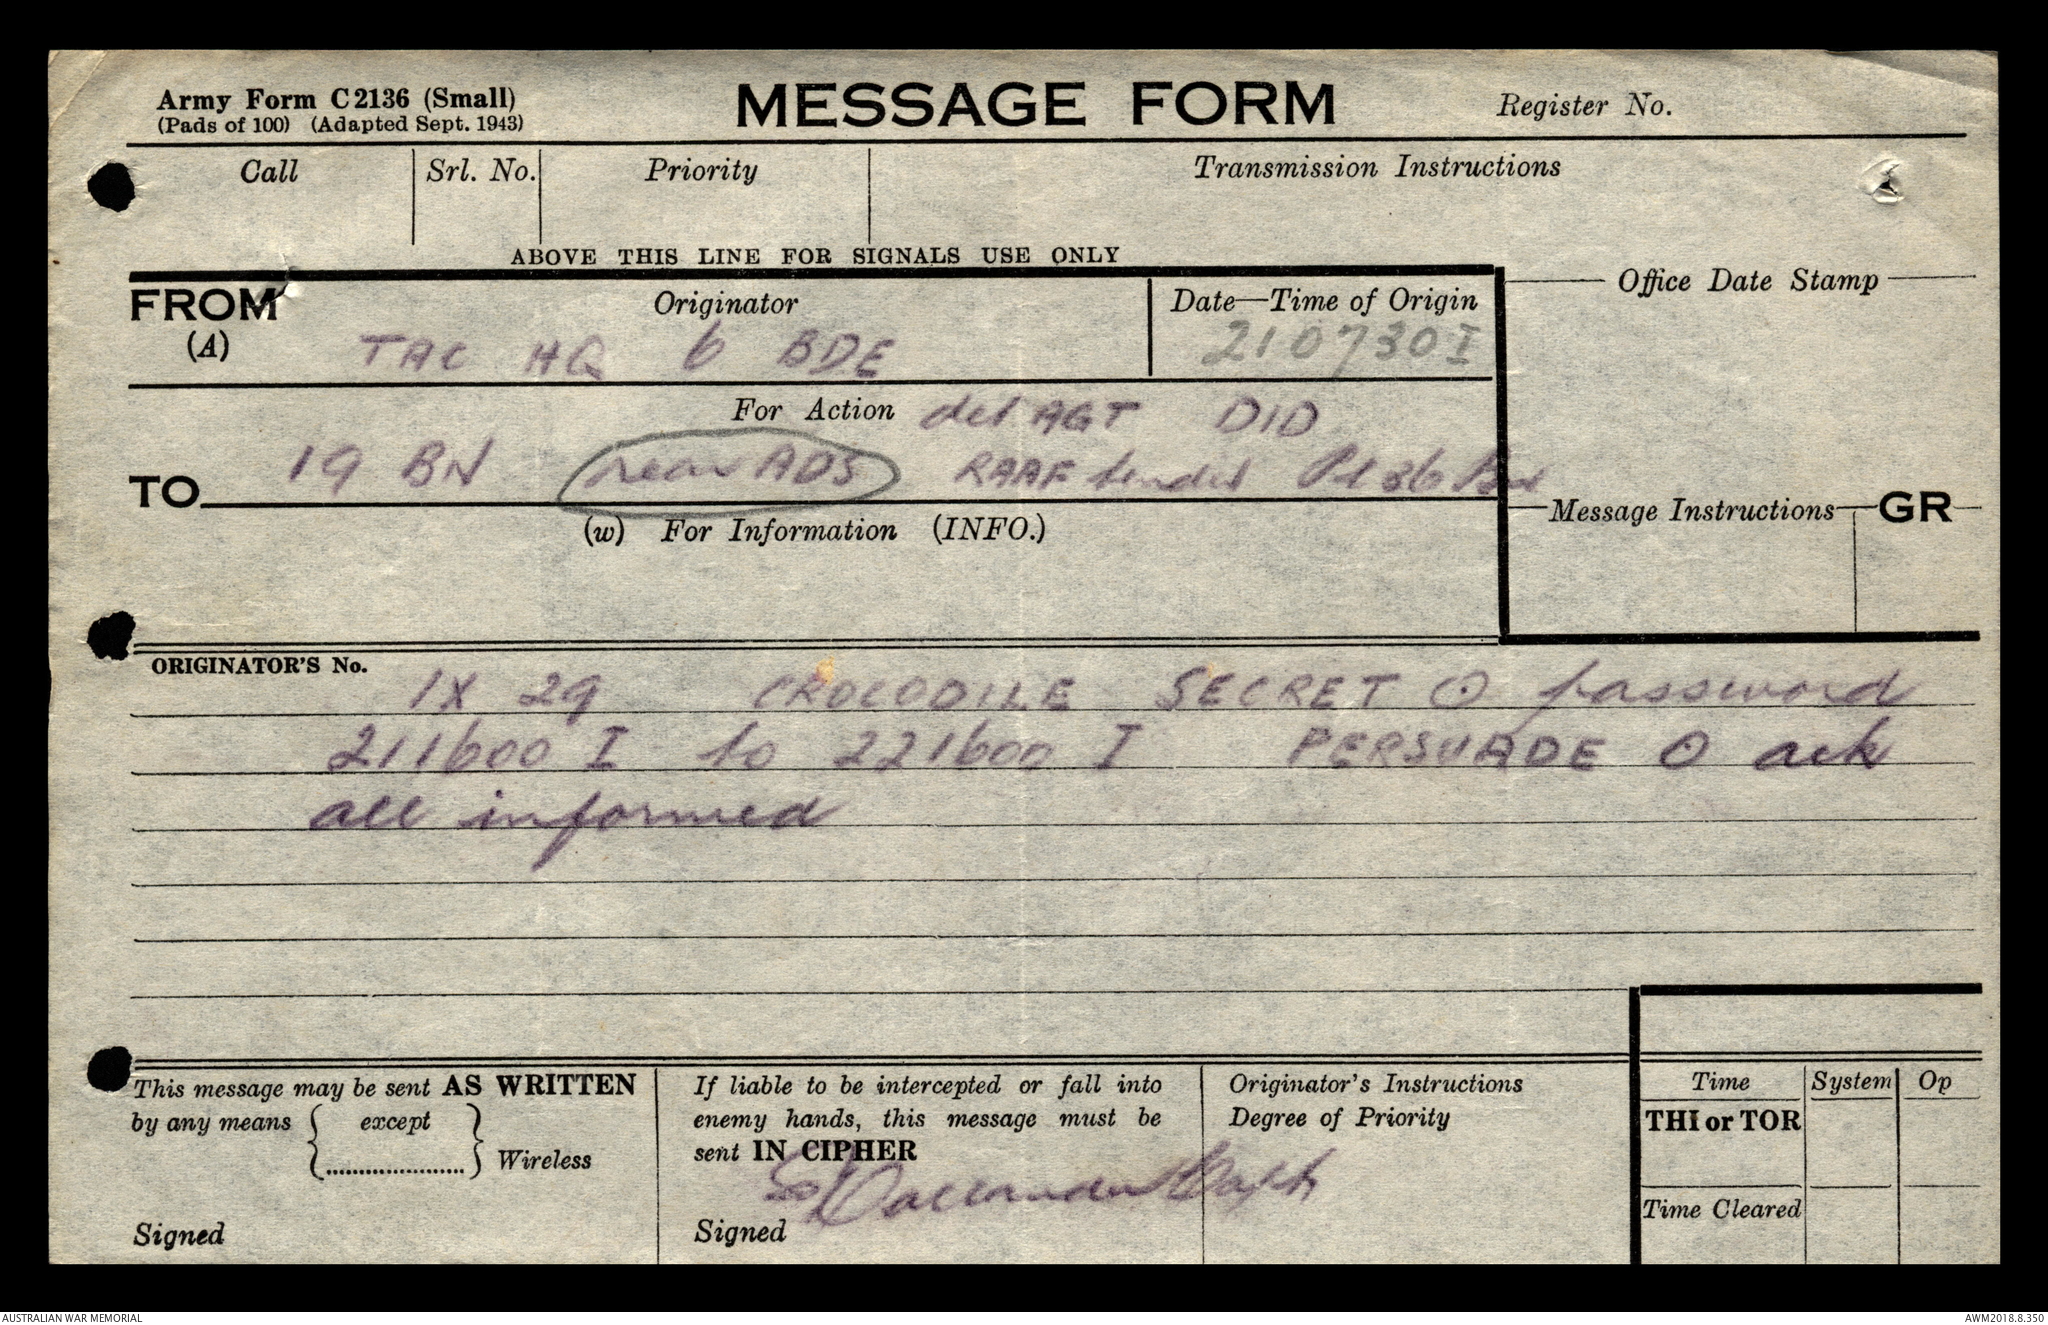 Army Form C2136 (Small)
(Pads of 100) (Adapted Sept. 1943)
MESSAGE FORM
Register No.
Call
Srl. No.
Priority
Transmission Instructions
ABOVE THIS LINE FOR SIGNALS USE ONLY
FROM
(A)
Originator
TAC HQ 6 BDE
Date—Time of Origin
210730I
Office Date Stamp
For Action det AGT DID
TO 19 BN near ADS RAAF tender Pl 36 Bn
(w) For Information (INFO.)
Message Instructions GR
ORIGINATOR'S No.
IX 29 CROCODILE SECRET O password
211600 I to 221600 I PERSUADE O ack
all informed
This message may be sent AS WRITTEN
by any means { except
..................... } Wireless
Signed
If liable to be intercepted or fall into
enemy hands, this message must be
sent IN CIPHER
Capt
Signed
Originator's Instructions
Degree of Priority
Time System Op
THI or TOR
Time Cleared
AUSTRALIAN WAR MEMORIAL
AWM2018.8.350